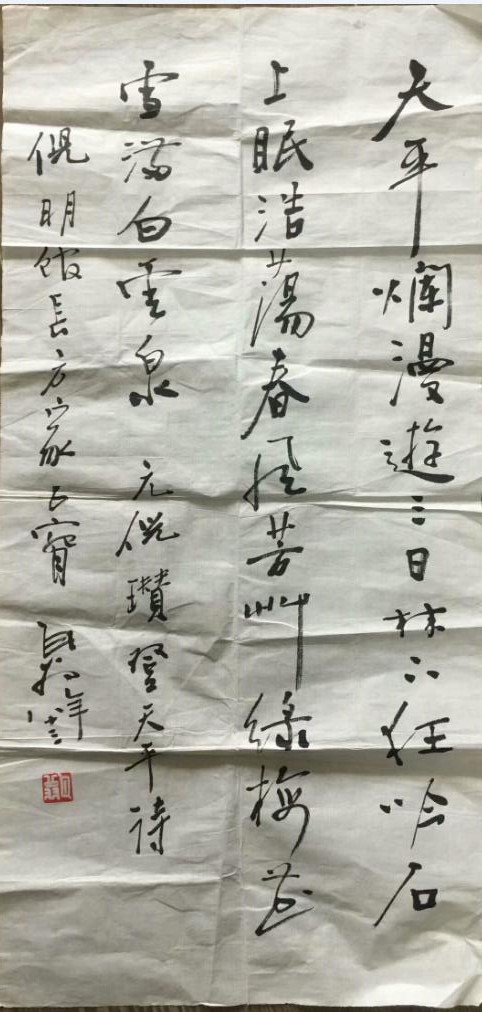 天平爛漫遊三日林下狂吟石
上眠浩蕩春風芳艸綠梅花
雪滿白雲泉 元倪瓚登天平詩
倪明館長方家